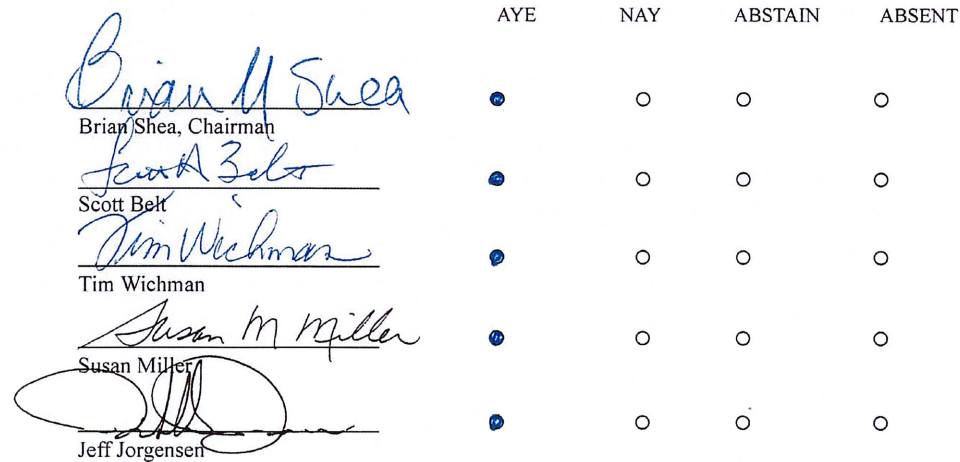 AYE NAY ABSTAIN ABSENT
Brian M Shea
Brian Shea, Chairman
Scott A Belt
Scott Belt
Tim Wichman
Tim Wichman
Susan M Miller
Susan Miller
Jeff Jorgensen